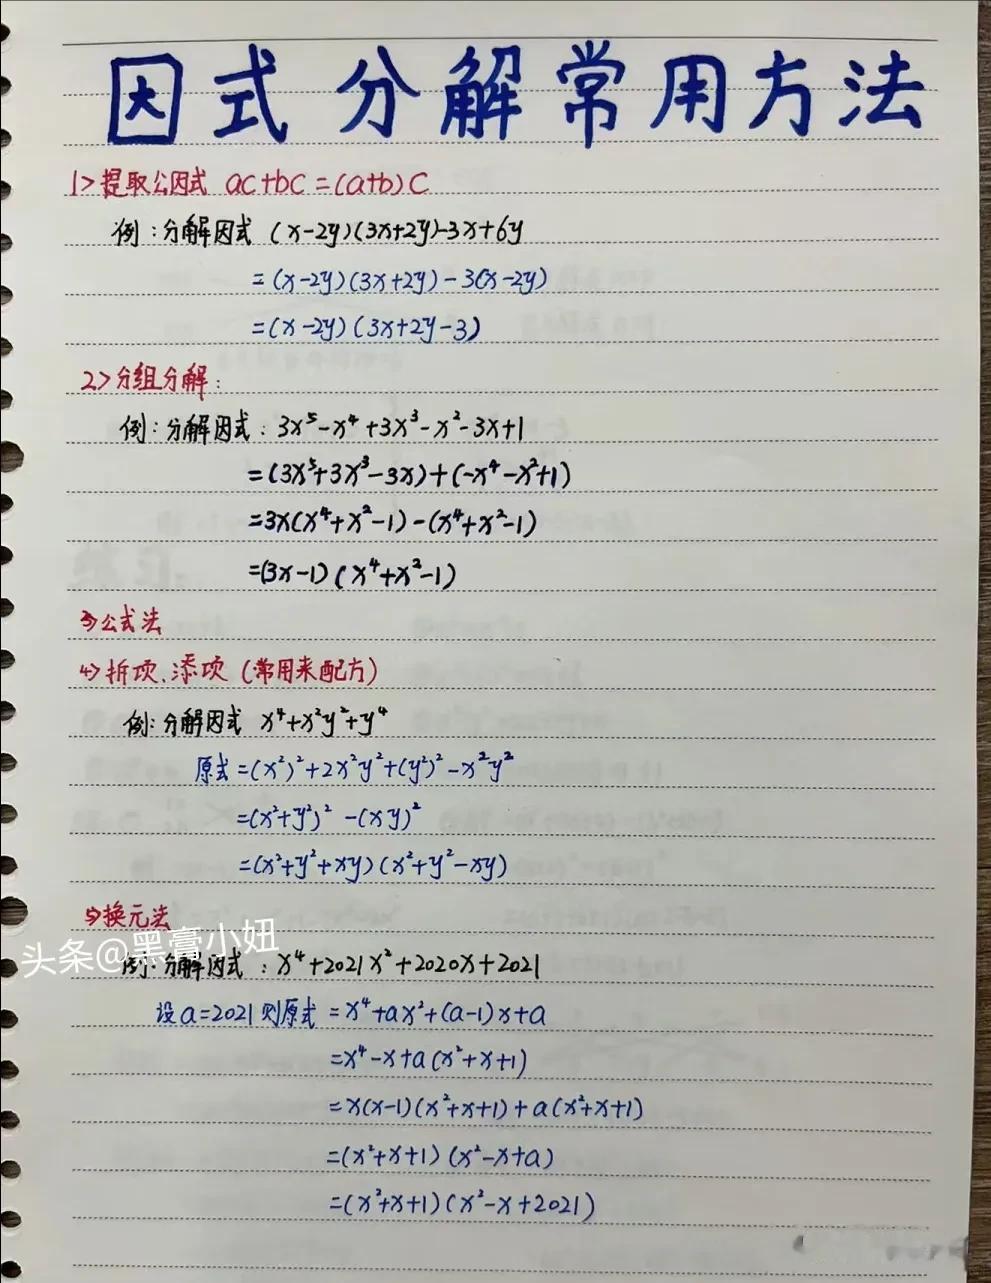 因式分解常用方法
1>提取公因式 ac+bc=(a+b)c
例:分解因式 (x-2y)(3x+2y)-3x+6y
=(x-2y)(3x+2y)-3(x-2y)
=(x-2y)(3x+2y-3)
2>分组分解:
例:分解因式:3x⁵-x⁴+3x³-x²-3x+1
=(3x⁵+3x³-3x)+(-x⁴-x²+1)
=3x(x⁴+x²-1)-(x⁴+x²-1)
=(3x-1)(x⁴+x²-1)
3>公式法
4>拆项、添项(常用来配方)
例:分解因式 x⁴+x²y²+y⁴
原式=(x²)²+2x²y²+(y²)²-x²y²
=(x²+y²)²-(xy)²
=(x²+y²+xy)(x²+y²-xy)
5>换元法
头条@黑膏小妞
例:分解因式:x⁴+2021x²+2020x+2021
设a=2021则原式=x⁴+ax²+(a-1)x+a
=x⁴-x+a(x²+x+1)
=x(x-1)(x²+x+1)+a(x²+x+1)
=(x²+x+1)(x²-x+a)
=(x²+x+1)(x²-x+2021)